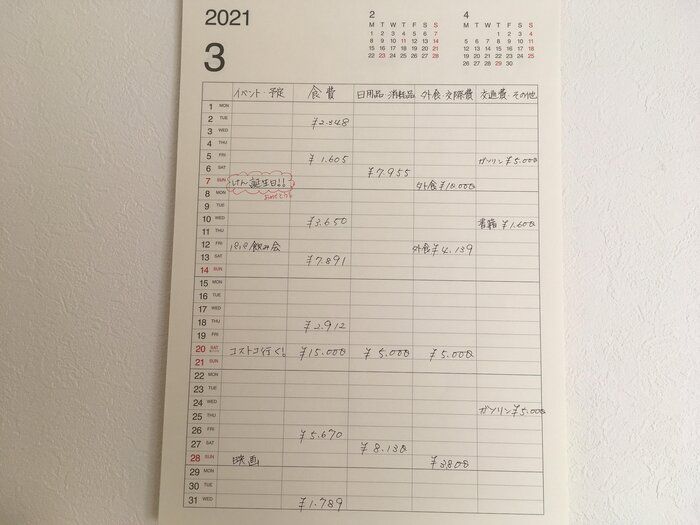 2021
3
2
M T W T F S S
1 2 3 4 5 6 7
8 9 10 11 12 13 14
15 16 17 18 19 20 21
22 23 24 25 26 27 28
4
M T W T F S S
1 2 3 4
5 6 7 8 9 10 11
12 13 14 15 16 17 18
19 20 21 22 23 24 25
26 27 28 29 30
イベント・予定 食費 日用品・消耗品 外食・交際費 交通費・その他
1 MON
2 TUE
¥2.348
3 WED
4 THU
5 FRI
¥1.605 ガソリン ¥5.000
6 SAT ¥7955
7 SUN 誕生日!! 外食 ¥10.000
おめでとう
8 MON
9 TUE
10 WED ¥3.650 書籍 ¥1.600
11 THU
12 FRI パパ飲み会 外食 ¥4.139
13 SAT ¥7.891
14 SUN
15 MON
16 TUE
17 WED
18 THU ¥2.912
19 FRI
20 SAT コストコ行く! ¥15.000 ¥5.000 ¥5.000
21 SUN
22 MON
23 TUE
24 WED ガソリン ¥5.000
25 THU
26 FRI ¥5.670
27 SAT ¥8.130
28 SUN 映画 ¥3800
29 MON
30 TUE
31 WED ¥1.789